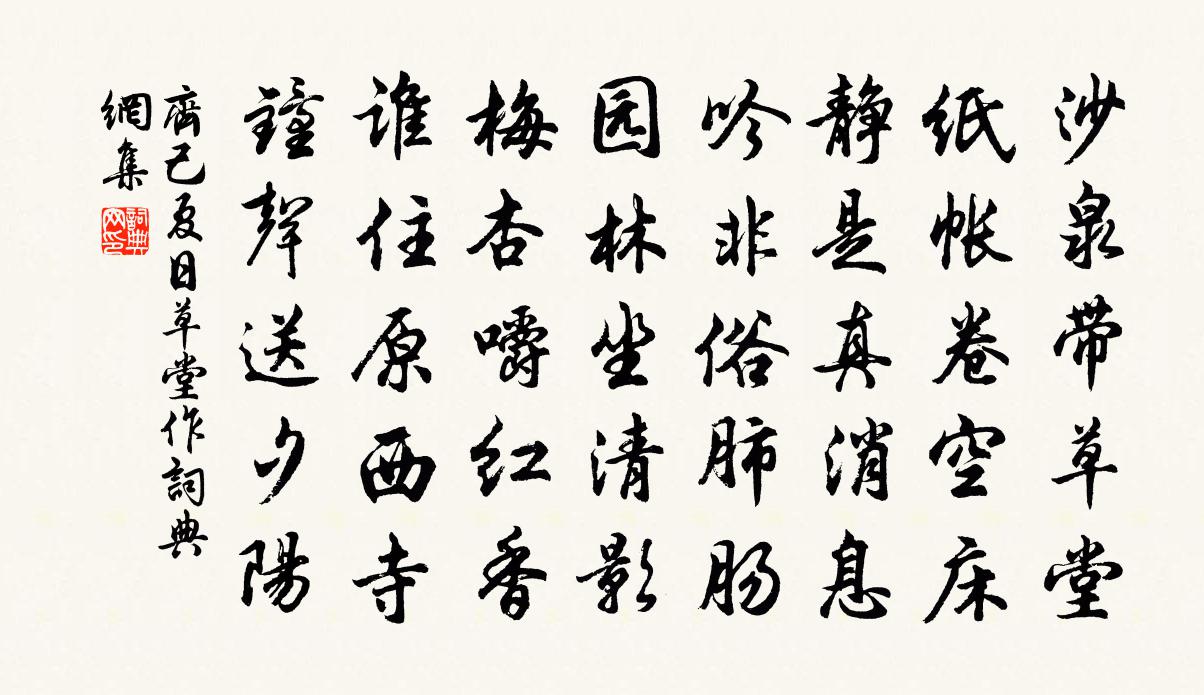 沙泉带草堂
纸帐卷空床
静是真消息
吟非俗肺肠
园林坐清影
梅杏嚼红香
谁住原西寺
鐘聲送夕陽
齊己夏日草堂作詞典
網集
詞典网印